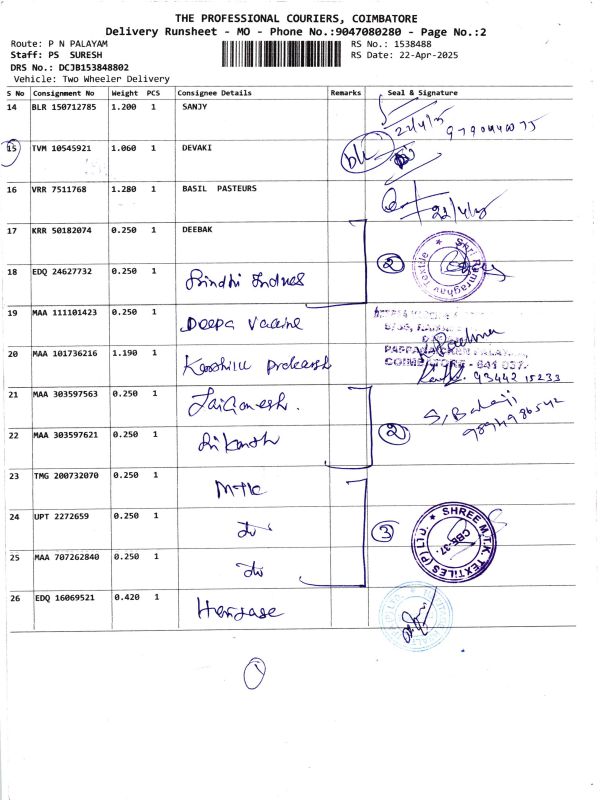 THE PROFESSIONAL COURIERS, COIMBATORE
Delivery Runsheet - MO - Phone No.:9047080280 - Page No.:2
Route: P N PALAYAM RS No.: 1538488
Staff: PS SURESH RS Date: 22-Apr-2025
DRS No.: DCJB153848802
Vehicle: Two Wheeler Delivery
S No Consignment No Weight PCS Consignee Details Remarks Seal & Signature
14 BLR 150712785 1.200 1 SANJY 22/4/25
15 TVM 10545921 1.060 1 DEVAKI
16 VRR 7511768 1.280 1 BASIL PASTEURS 22/4/25
17 KRR 50182074 0.250 1 DEEBAK 2 Shri Ramraghav Textile
18 EDQ 24627732 0.250 1
19 MAA 111101423 0.250 1 Deepa Vaccine
20 MAA 101736216 1.190 1 PAPPANAICKEN PALAYAM,
COIMBATORE - 641 037.
93442 15233
21 MAA 303597563 0.250 1 Jai Ganesh. S. Balaji
9894986542
22 MAA 303597621 0.250 1 Srikanth 2
23 TMG 200732070 0.250 1 MTK
24 UPT 2272659 0.250 1 do 3 SHREE M.T.K. TEXTILES (P) LTD. CBE-37.
25 MAA 707262840 0.250 1 do
26 EDQ 16069521 0.420 1
1